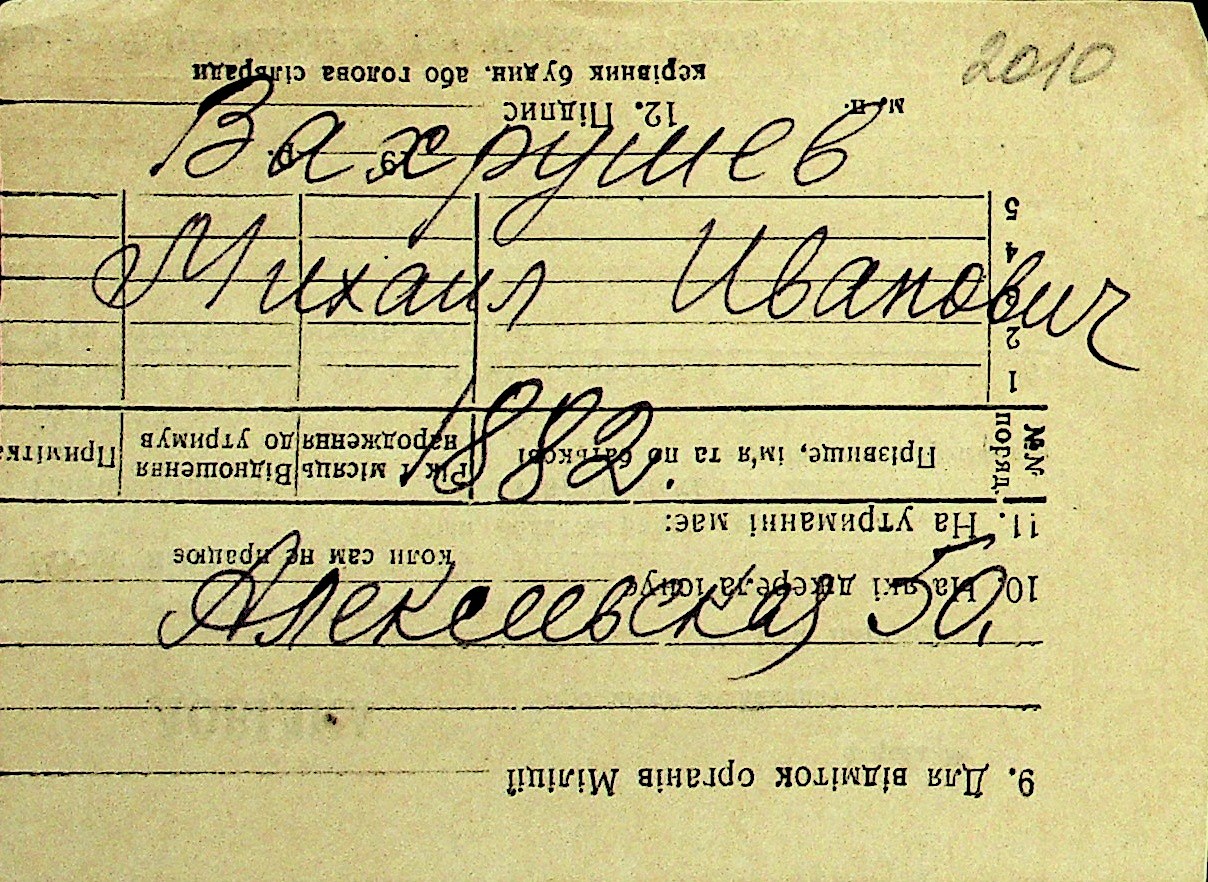 2010
Вахрушев
Михаил Иванович
1882.
Алексеевская 50.
9. Для відміток органів Міліції
10. На які джерела існує
коли сам не працює
11. На утриманні має:
№№ поряд. Прізвище, ім'я та по батькові Рік і місяць народження Відношення до утримув Примітка
1
2
3
4
5
м. п. 12. Підпис
керівник будин. або голова сільради